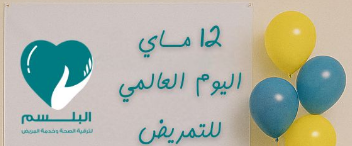 12 ماي
اليوم العالمي
للتمريض
البلسم
لترقية الصحة وخدمة المريض